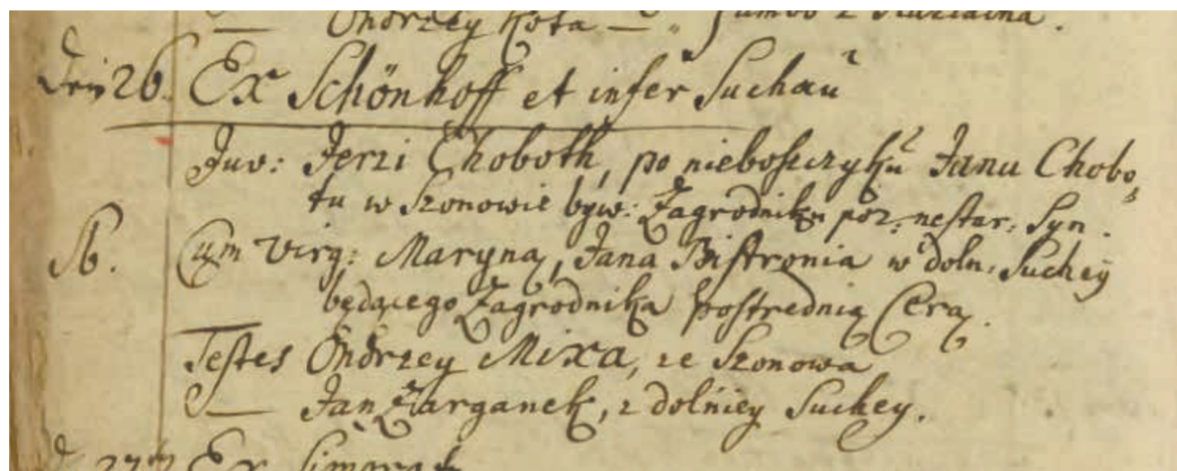 Ondrzey Kota — „
Dein 26. Ex Schönhoff et infer Suchaŭ
Juv: Jerzi Choboth, po nieboszczykŭ Janu Chobo-
tu w Szonowie byw: Zagrodniku poz: nestar: Syn.
Sb. Cum Virg: Maryną, Jana Bistronia w doln: Suchey
będącego Zagrodnika postrednią Cerą.
Testes Ondrzey Mixa, ze Szonowa
— Jan Zarganek, z dolniey Suchey.
Ex